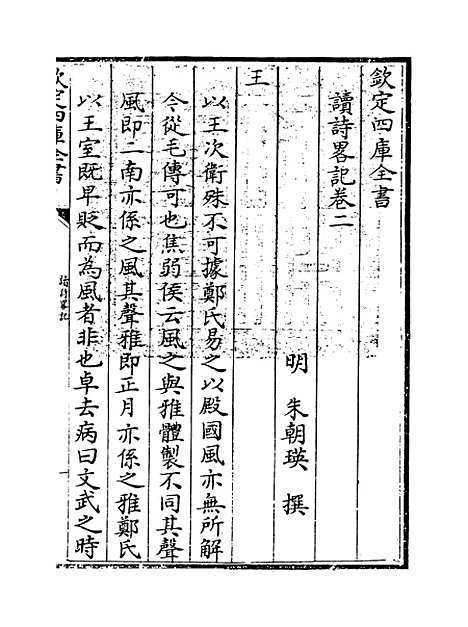 欽定四庫全書
讀詩畧記卷二
明 朱朝瑛 撰
王
以王次衛殊不可據鄭氏易之以殿國風亦無所解
今從毛傳可也焦弱侯云風之與雅體製不同其聲
風即二南亦係之風其聲雅即正月亦係之雅鄭氏
以王室既卑貶而為風者非也卓去病曰文武之時
欽定四庫全書
讀詩畧記
一